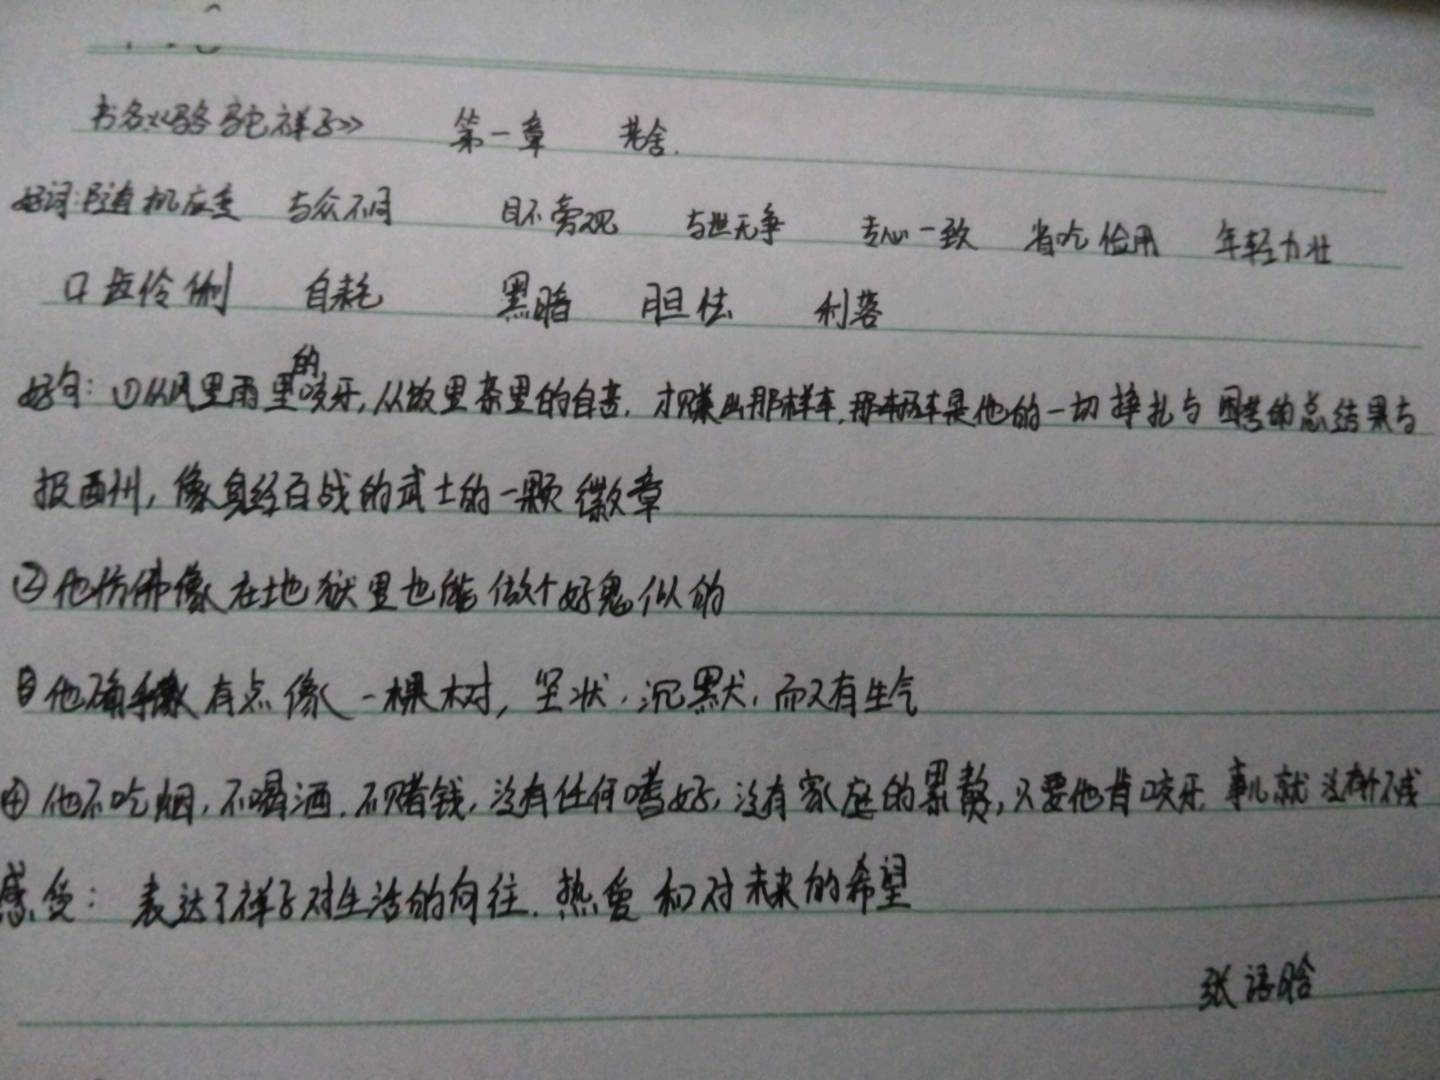 书名:《骆驼祥子》 第一章 老舍.
好词:随机应变 与众不同 目不旁观 与世无争 专心一致 省吃俭用 年轻力壮
口齿伶俐 自耗 黑暗 胆怯 利落
好句:①从风里雨里的咬牙,从饭里茶里的自苦,才赚出那样车,那辆车是他的一切挣扎与困苦的总结果与
报酬,像身经百战的武士的一颗徽章
②他仿佛像在地狱里也能做个好鬼似的
③他确乎有点像一棵树,坚壮,沉默,而又有生气
④他不吃烟,不喝酒,不赌钱,没有任何嗜好,没有家庭的累赘,只要他肯咬牙,事儿就没有不成
感受:表达了祥子对生活的向往,热爱和对未来的希望
张语晗